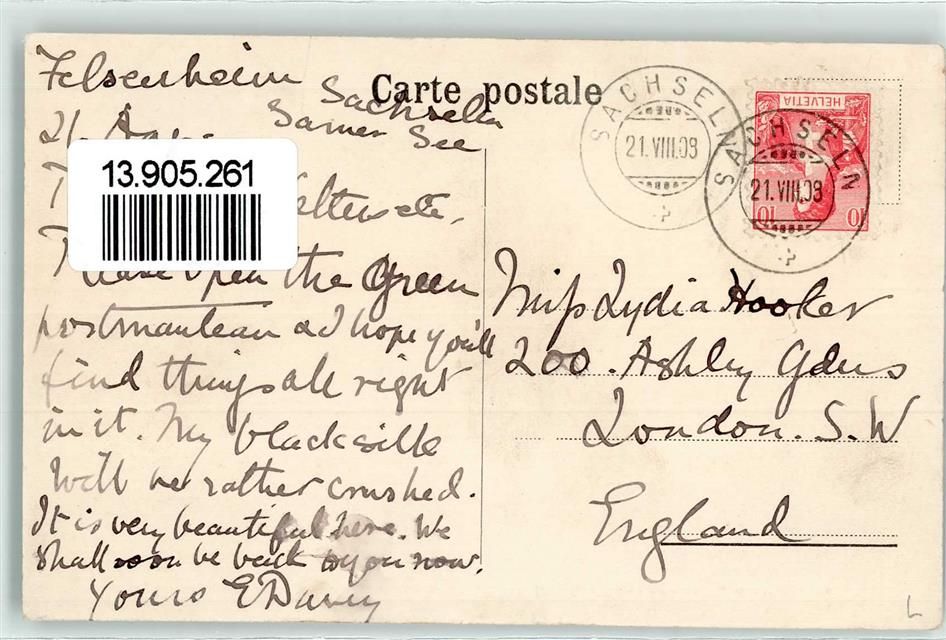 Carte postale
Felsenheim
Sachseln
Sarner See
21 Aug
13.905.261
Please open the Green
postmanteau as I hope you'll
find things all right
in it. My black silk
will be rather crushed.
It is very beautiful here. We
shall soon be back to you now.
Yours E Davey
SACHSELN
21.VIII.08
SACHSELN
21.VIII.08
HELVETIA
10 10
Miss Lydia Hooker
200. Ashley Gdens
London. S.W
England